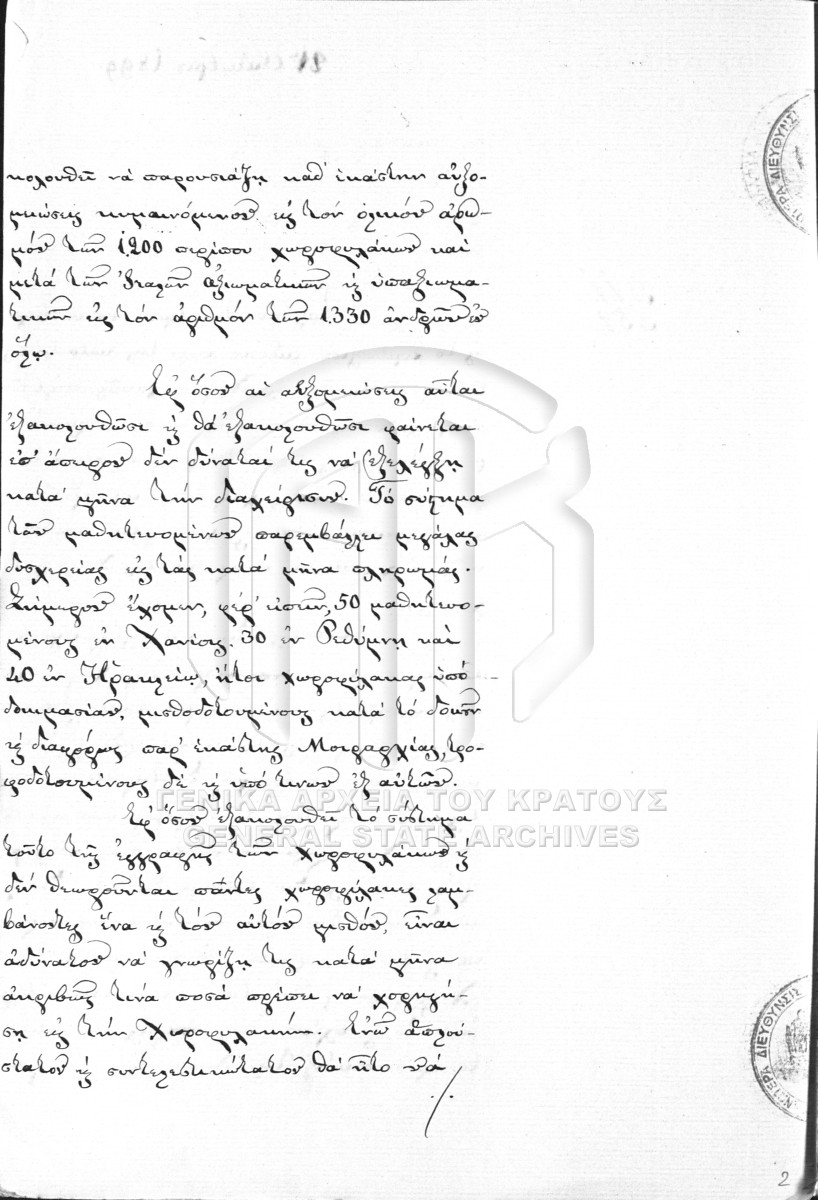 κολουθεῖ νὰ παρουσιάζῃ καθ' ἑκάστην αὐξο-
μειώσεις κυμαινόμενον εἰς τὸν ὁλικὸν ἀριθ-
μὸν τῶν 1,200 περίπου χωροφυλάκων καὶ
μετὰ τῶν Ἰταλῶν ἀξιωματικῶν ἢ ὑπαξιωμα-
τικῶν εἰς τὸν ἀριθμὸν τῶν 1.330 ἀνδρῶν ἐν
ὅλῳ.
Ἐφ' ὅσον αἱ αὐξομειώσεις αὗται
ἐξακολουθῶσι ἢ θὰ ἐξακολουθῶσι φαίνεται
ἐπ' ἄπειρον δὲν δύναταί τις νὰ ἐξελέγξῃ
κατὰ μῆνα τὴν διαχείρισιν. Τὸ σύστημα
τῶν μαθητευομένων παρεμβάλλει μεγάλας
δυσχερείας εἰς τὰς κατὰ μῆνα πληρωμάς.
Σήμερον ἔχομεν, φέρ' εἰπεῖν, 50 μαθητευο-
μένους ἐν Χανίοις. 30 ἐν Ρεθύμνῃ καὶ
40 ἐν Ἡρακλείῳ, ἤτοι χωροφύλακας ὑπὸ
δοκιμασίαν, μισθοδοτουμένους κατὰ τὸ δοκοῦν
ἢ διαφόρως παρ' ἑκάστης Μοιραρχίας, τρο-
φοδοτουμένους δὲ ἢ ὑπό τινων ἐξ αὐτῶν.
Ἐφ' ὅσον ἐξακολουθεῖ τὸ σύστημα
τοῦτο τῆς ἐγγραφῆς τῶν χωροφυλάκων ἢ
δὲν θεωροῦνται πάντες χωροφύλακες λαμ-
βάνοντες ἕνα ἢ τὸν αὐτὸν μισθόν, εἶναι
ἀδύνατον νὰ γνωρίζῃ τις κατὰ μῆνα
ἀκριβῶς τίνα ποσὰ πρέπει νὰ χορηγή-
σῃ εἰς τὴν Χωροφυλακήν. Ἐνῷ ἁπλού-
στατον ἢ συντελεστικώτατον θὰ ἦτο νὰ
./.
ΓΕΝΙΚΑ ΑΡΧΕΙΑ ΤΟΥ ΚΡΑΤΟΥΣ
GENERAL STATE ARCHIVES
2